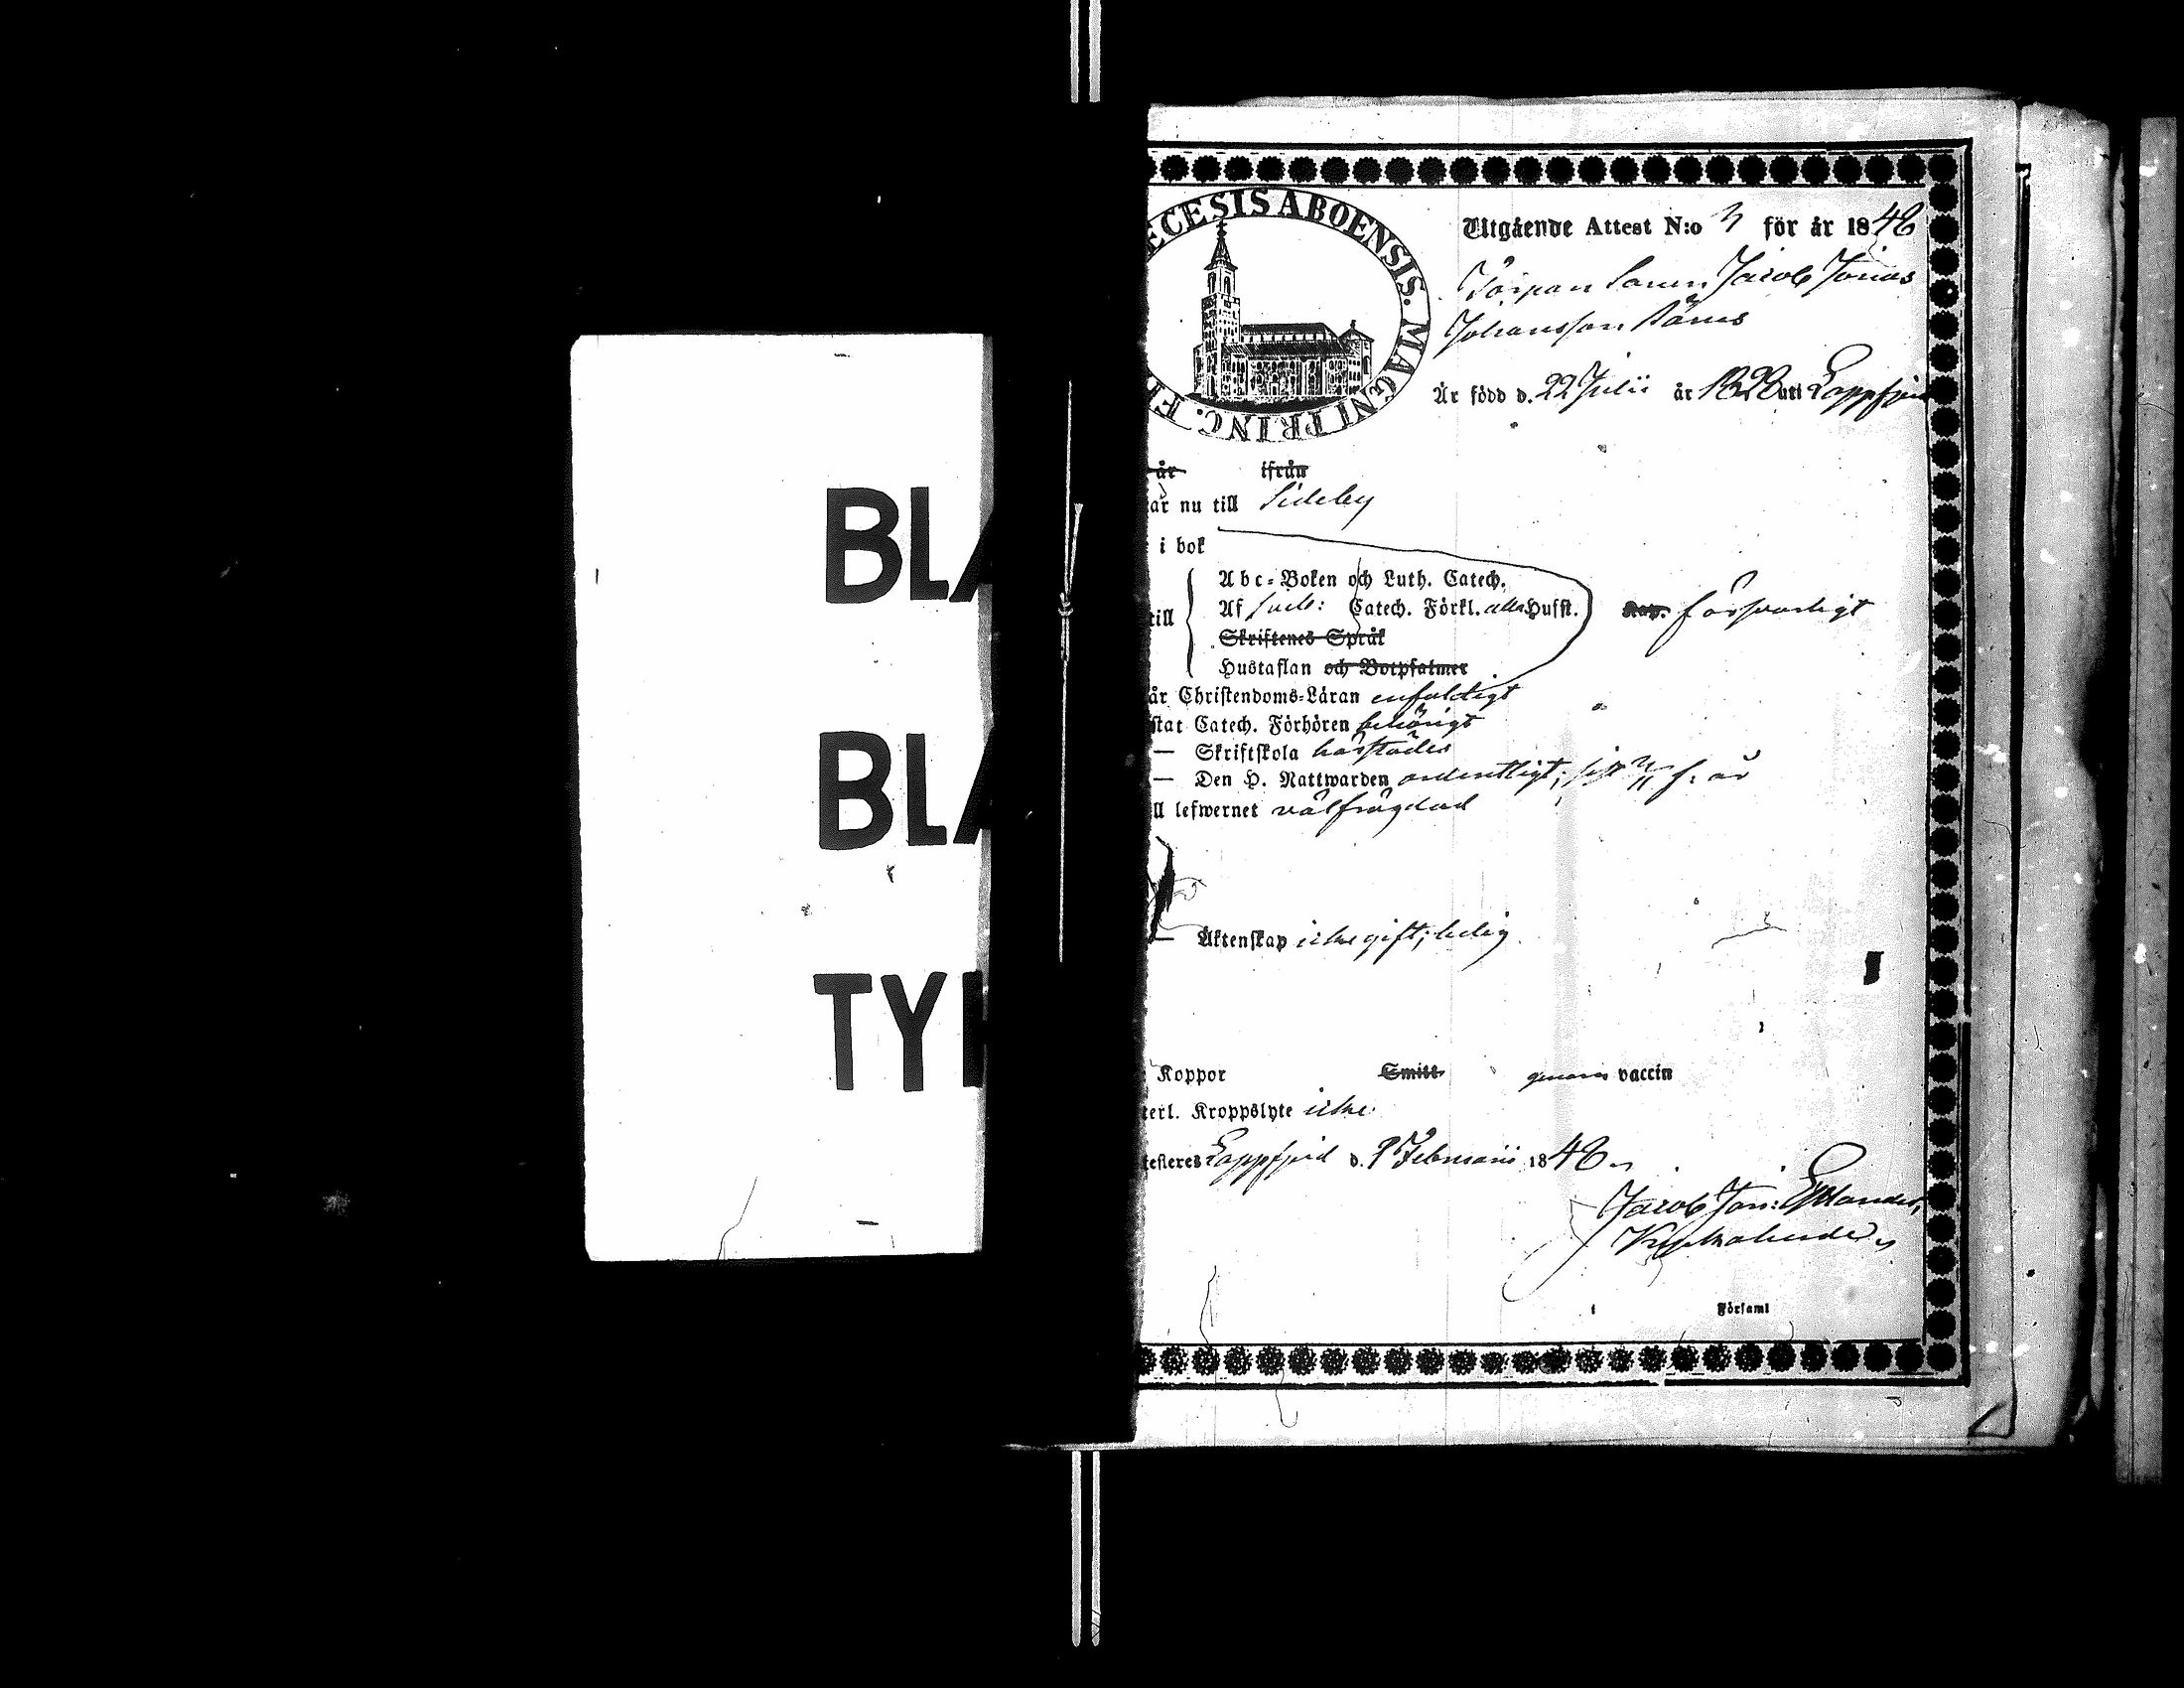 BLA
BLA
TY
ECESIS ABOENSIS. MAGNI PRINC. FI
Utgående Attest N:o 3 för år 1848
Jacob Jonas
Johansson
Är född d. 22 Julii år 1828 uti Lappfjerd
år ifrån
ar nu till Sideby
i bok
Abc-Boken och Luth. Catech.
till Af Catech. Förkl. alla Hufst. försvarligt
Skriftenes Språk
Hustaflan och Botpsalmer
år Christendoms-Läran enfaldigt
stat Catech. Förhören behörigt
— Skriftskola härstädes
— Den H. Nattwarden ordentligt; sist f. år
ll lefwernet välfrägdad
— Äktenskap icke gift; ledig
Koppor Smitt genom vaccin
terl. Kroppslyte icke
testeres Lappfjerd d. 9 Februarii 1848
Jacob Jon:
i Församl